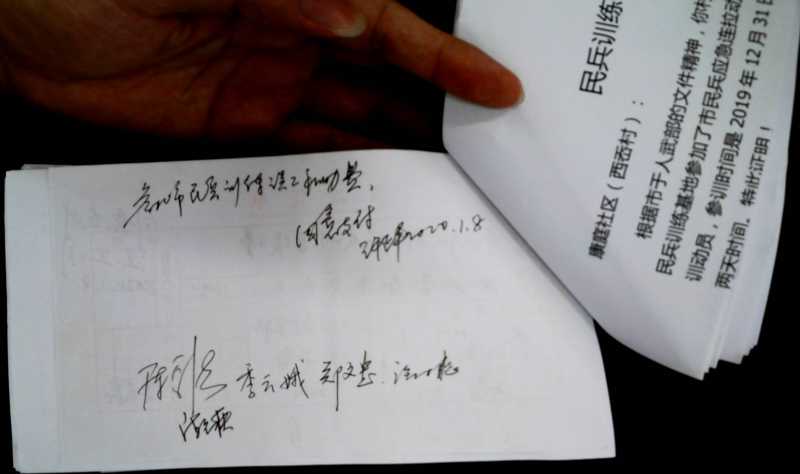 市民兵训练误工和动费,
同意支付
2020.1.8
李云娥 郑文忠
民兵训练
康庭社区（西岙村）：
根据市于人武部的文件精神，你村
民兵训练基地参加了市民兵应急连拉动
训动员，参训时间是 2019 年 12 月 31 日
两天时间。特此证明！